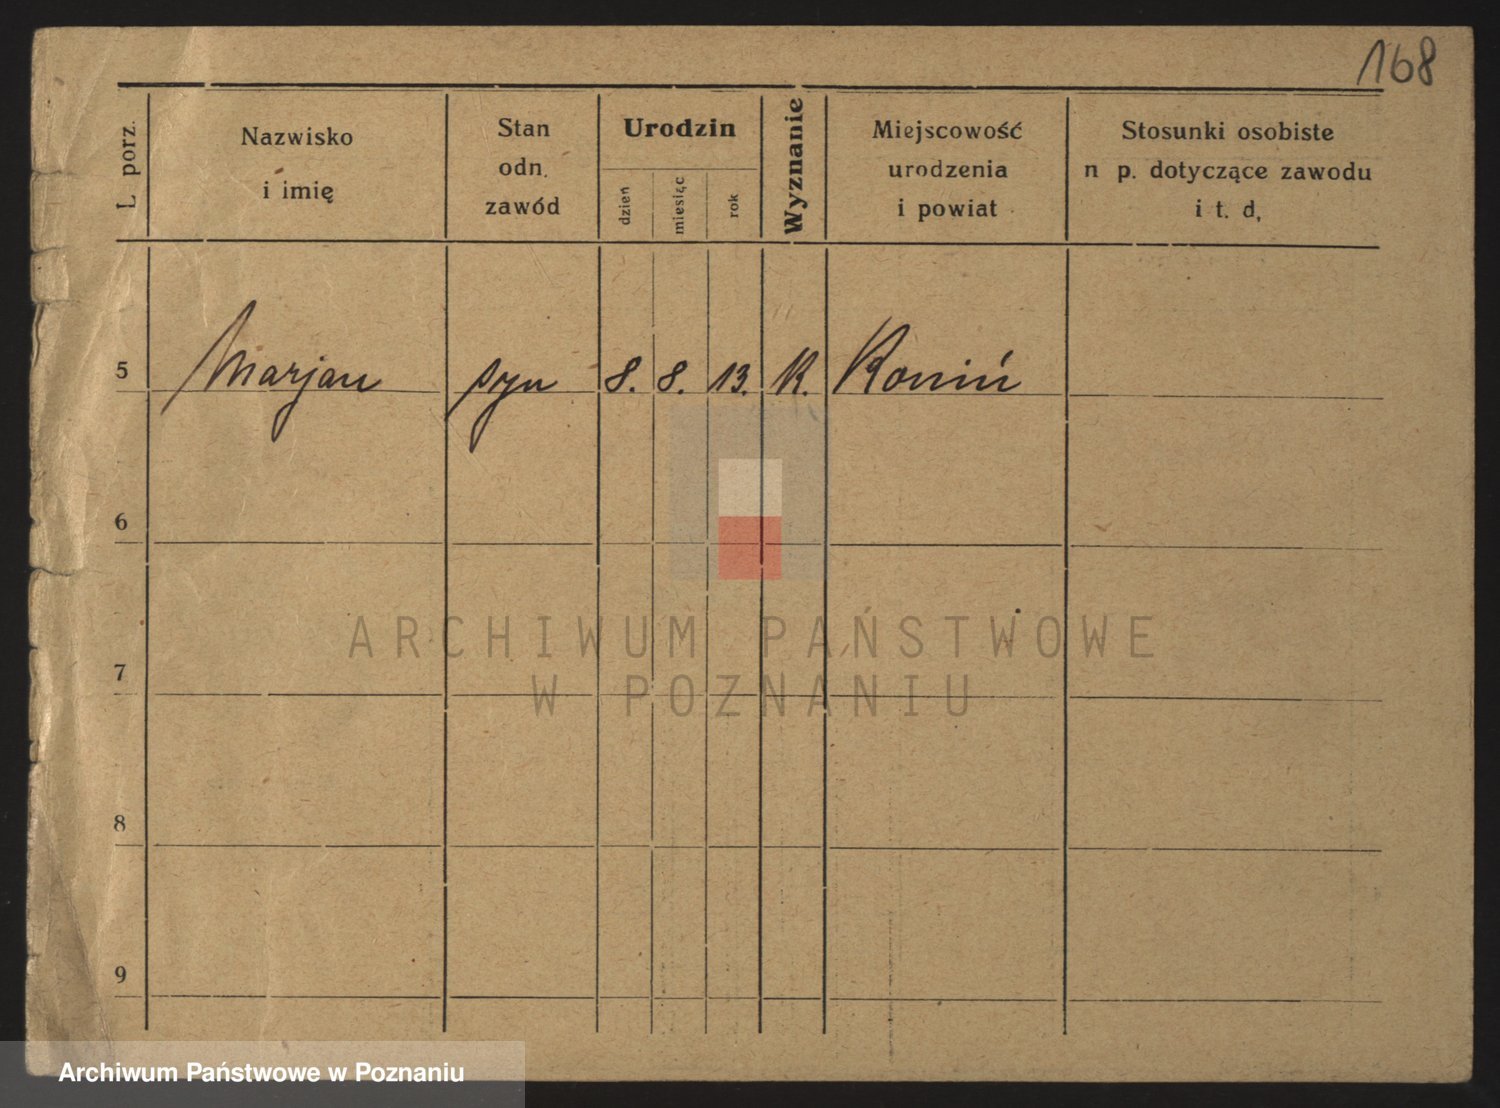 168
L. porz.
Nazwisko
i imię
Stan
odn.
zawód
Urodzin
dzień
miesiąc
rok
Wyznanie
Miejscowość
urodzenia
i powiat
Stosunki osobiste
n p. dotyczące zawodu
i t. d,
5 Marjan syn 8. 8. 13. K. Konin
6
7
8
9
ARCHIWUM PAŃSTWOWE
W POZNANIU
Archiwum Państwowe w Poznaniu